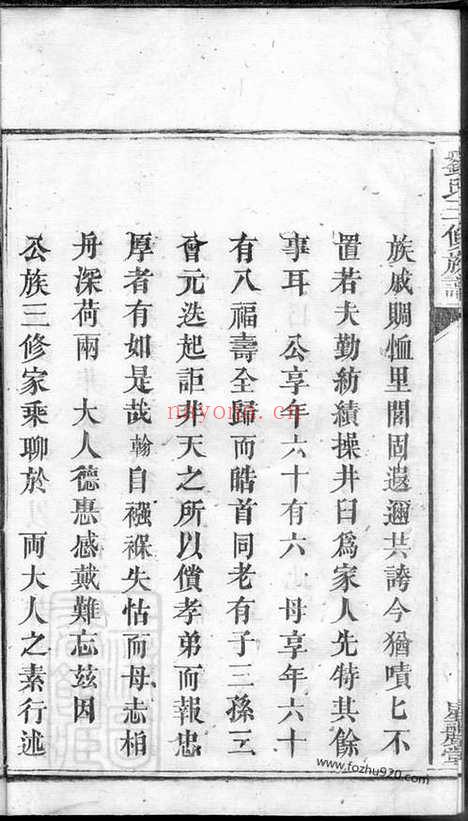 族戚賙恤里閭固遐邇共誇今猶嘖匕不
置若夫勤紡績操井臼爲家人先特其餘
事耳　公享年六十有六　母享年六十
有八福壽全歸而皓首同老有子三孫三
會元迭起詎非天之所以償孝弟而報忠
厚者有如是哉翰自襁褓失怙而母志相
舟深荷兩　大人德惠感戴難忘玆因
公族三修家乘聊於　兩大人之素行述
氏三修族譜
nayona.cn
www.fozhu920.com